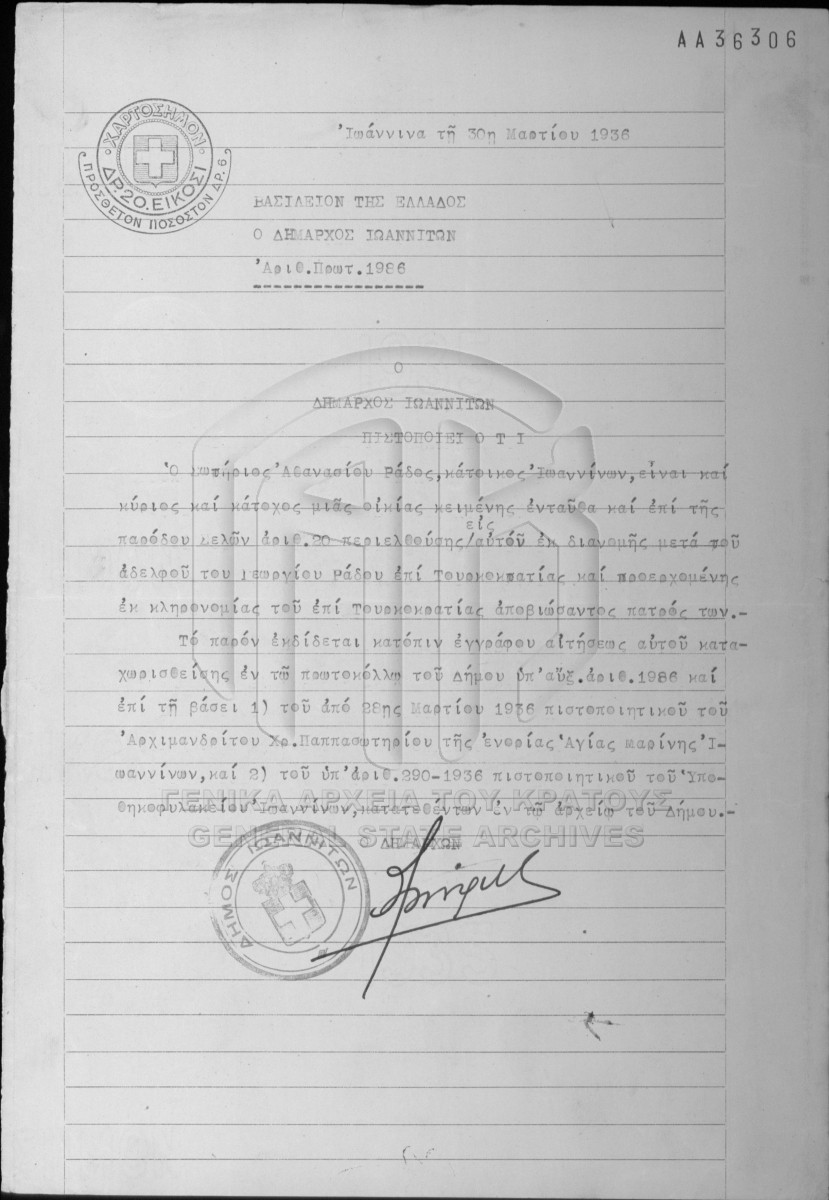 ΑΑ36306
ΧΑΡΤΟΣΗΜΟΝ
ΔΡ.20.ΕΙΚΟΣΙ
ΠΡΟΣΘΕΤΟΝ ΠΟΣΟΣΤΟΝ ΔΡ.6.
Ἰωάννινα τῇ 30ῃ Μαρτίου 1936
ΒΑΣΙΛΕΙΟΝ ΤΗΣ ΕΛΛΑΔΟΣ
Ο ΔΗΜΑΡΧΟΣ ΙΩΑΝΝΙΤΩΝ
Ἀριθ.Πρωτ.1986
Ο
ΔΗΜΑΡΧΟΣ ΙΩΑΝΝΙΤΩΝ
ΠΙΣΤΟΠΟΙΕΙ Ο Τ Ι
Ὁ Σωτήριος Ἀθανασίου Ράδος,κάτοικος Ἰωαννίνων,εἶναι καί
κύριος καί κάτοχος μιᾶς οἰκίας κειμένης ἐνταῦθα καί ἐπί τῆς
εἰς
παρόδου Σελῶν ἀριθ.20 περιελθούσης/αὐτόν ἐκ διανομῆς μετά τοῦ
ἀδελφοῦ του Γεωργίου Ράδου ἐπί Τουρκοκρατίας καί προερχομένης
ἐκ κληρονομίας τοῦ ἐπί Τουρκοκρατίας ἀποβιώσαντος πατρός των.-
Τό παρόν ἐκδίδεται κατόπιν ἐγγράφου αἰτήσεως αὐτοῦ κατα-
χωρισθείσης ἐν τῷ πρωτοκόλλῳ τοῦ Δήμου ὑπ'αὔξ.ἀριθ.1986 καί
ἐπί τῇ βάσει 1) τοῦ ἀπό 28ης Μαρτίου 1936 πιστοποιητικοῦ τοῦ
Ἀρχιμανδρίτου Χρ.Παππασωτηρίου τῆς ἐνορίας Ἁγίας Μαρίνης Ἰ-
ωαννίνων,καί 2) τοῦ ὑπ'ἀριθ.290-1936 πιστοποιητικοῦ τοῦ Ὑπο-
θηκοφυλακείου Ἰωαννίνων,κατατεθέντων ἐν τῷ ἀρχείῳ τοῦ Δήμου.-
ΓΕΝΙΚΑ ΑΡΧΕΙΑ ΤΟΥ ΚΡΑΤΟΥΣ
GENERAL STATE ARCHIVES
ΔΗΜΑΡΧΩΝ
ΔΗΜΟΣ ΙΩΑΝΝΙΤΩΝ